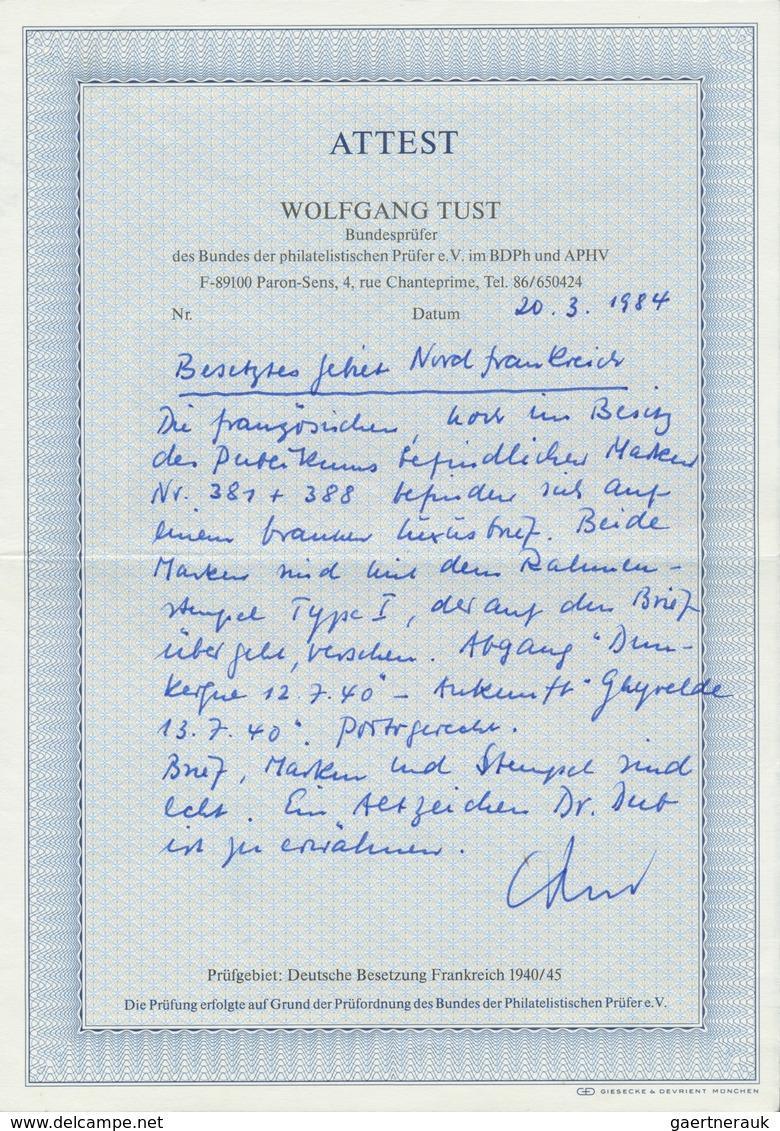 ATTEST
WOLFGANG TUST
Bundesprüfer
des Bundes der philatelistischen Prüfer e.V. im BDPh und APHV
F-89100 Paron-Sens, 4, rue Chanteprime, Tel. 86/650424
Nr. Datum 20.3.1984
Besetztes Gebiet Nordfrankreich
Die französischen, noch im Besitz
des Publikums befindlichen Marken
Nr. 381 + 388 befinden sich auf
einem braunen Luxusbrief. Beide
Marken sind mit dem Rahmen-
stempel Type I, der auf den Brief
übergeht, versehen. Abgang "Dun-
kerque 12.7.40" - Ankunft "Ghyvelde
13.7.40". Portogerecht.
Brief, Marken und Stempel sind
echt. Ein Altzeichen Dr. Dub
ist zu erwähnen.
Prüfgebiet: Deutsche Besetzung Frankreich 1940/45
Die Prüfung erfolgte auf Grund der Prüfordnung des Bundes der Philatelistischen Prüfer e.V.
GIESECKE & DEVRIENT MÜNCHEN
gaertnerauk